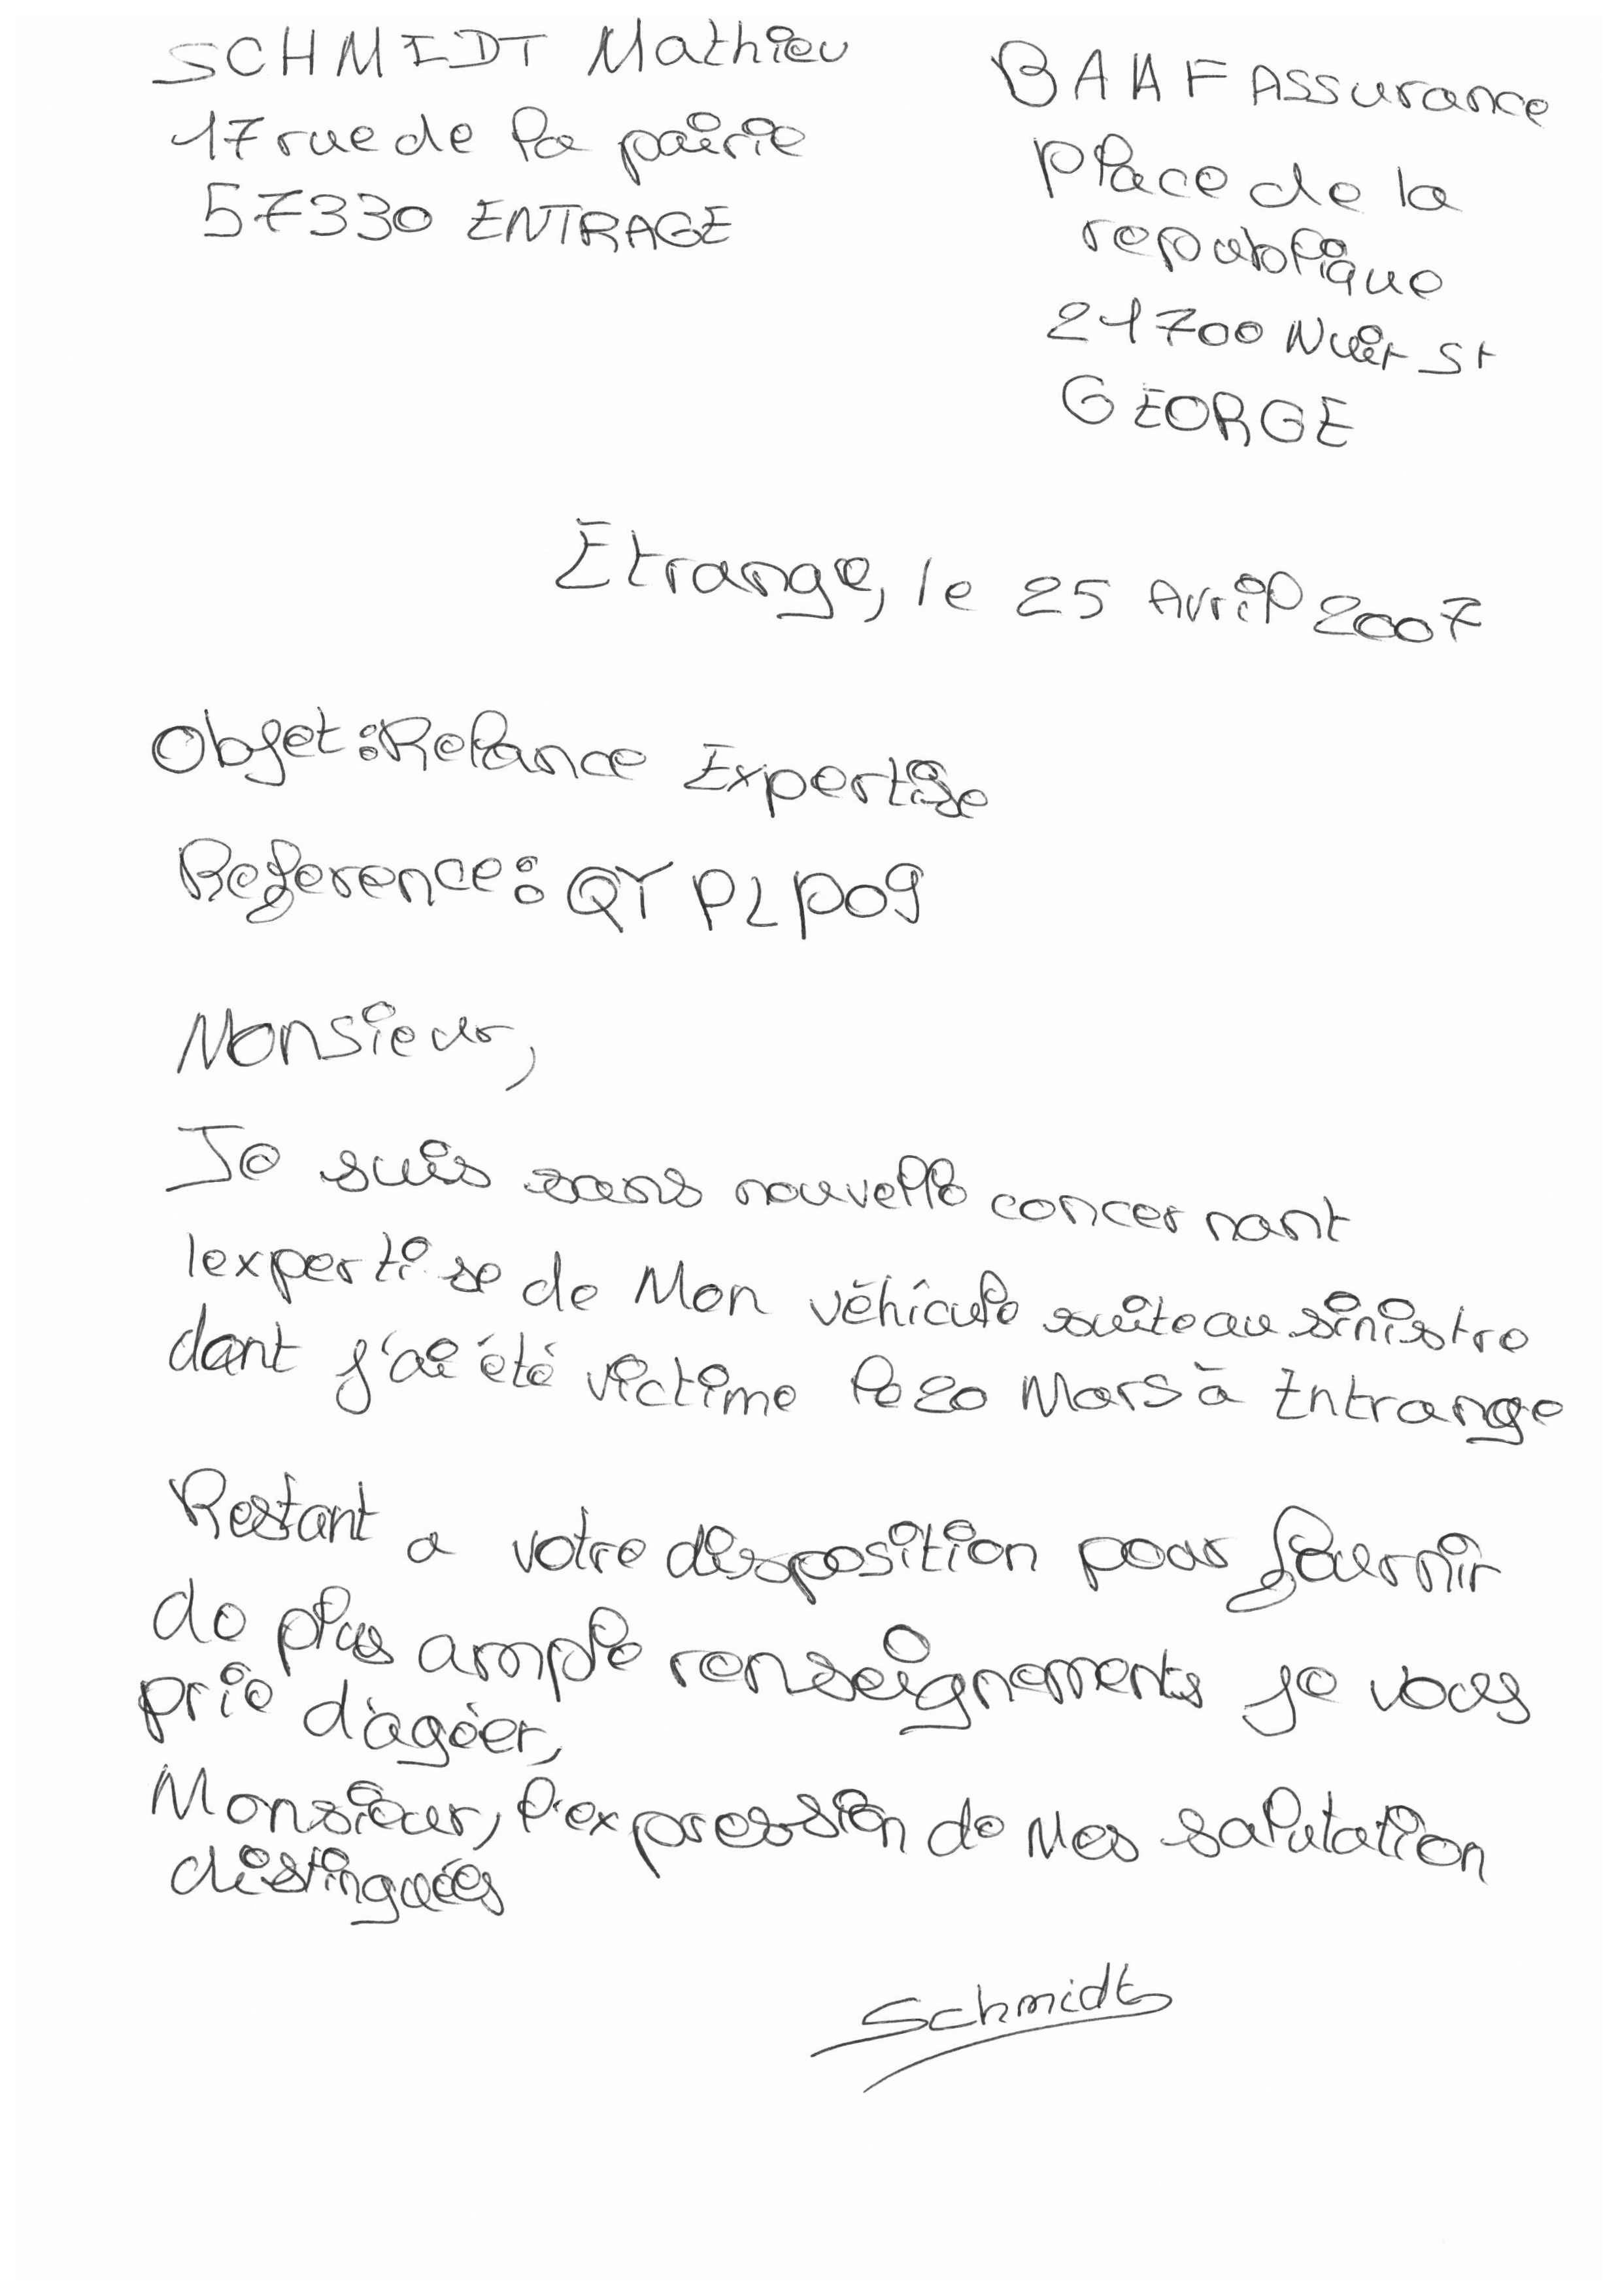 SCHMIDT Mathieu
17 rue de la pairie
57330 ENTRAGE
BAAF Assurance
place de la
republique
21700 Nuit St
GEORGE
Etrange, le 25 Avril 2007
Objet : Relance Expertise
Reference : QYPLP09
Monsieur,
Je suis sans nouvelle concernant
lexpertise de Mon véhicule suite au sinistre
dont j'ai été victime le 20 Mars à Entrange
Restant a votre disposition pour fournir
de plus ample renseignements je vous
prie d'agéer,
Monsieur, l'expression de Mes salutation
distinguées
Schmidt